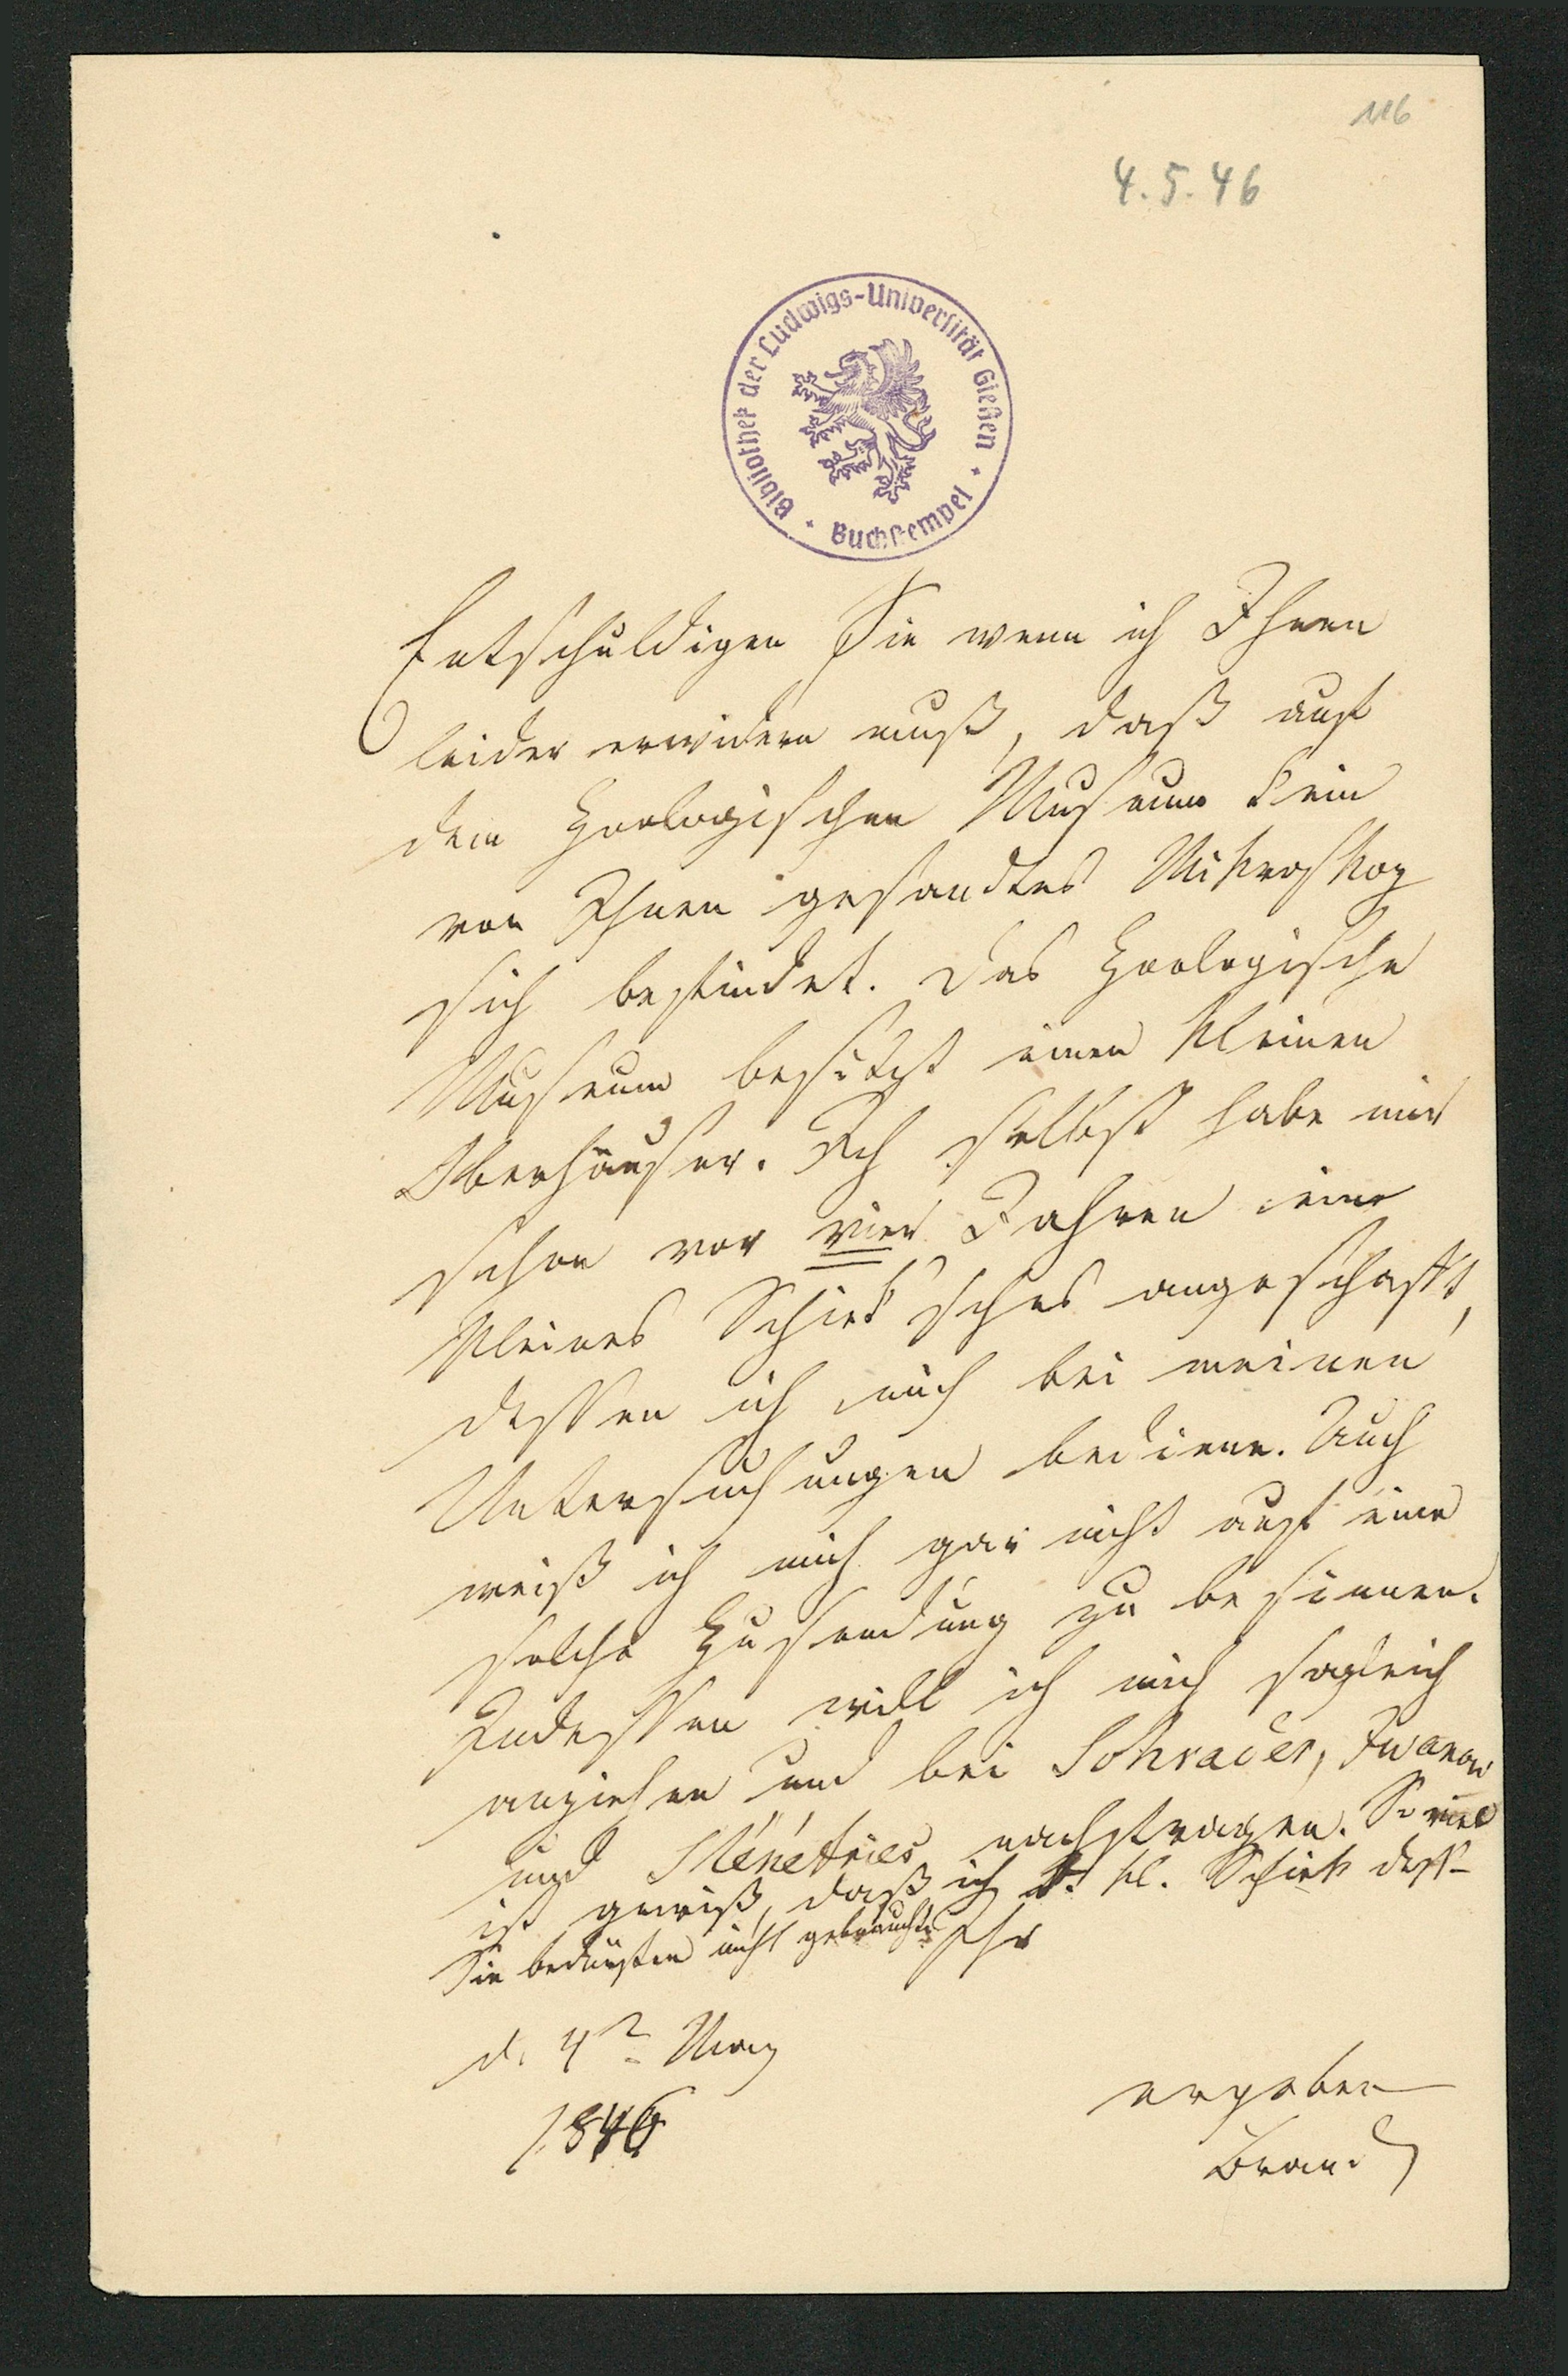 116
4.5.46
Bibliothek der Ludwigs-Universität Gießen
Buchstempel
Entschuldigen Sie wenn ich Ihnen
leider erwidern muß, daß auf
dem Zoologischen Museum kein
von Ihnen gesandtes Mikroskop
sich befindet. Das Zoologische
Museum besitzt einen kleinen
Oberhäuser. Ich selbst habe mir
schon vor vier Jahren ein
kleines Schiek'sches angeschafft,
dessen ich mich bei meinen
Untersuchungen bediene. Auch
weiß ich mich gar nicht auf eine
solche Zusendung zu besinnen.
Indessen will ich mich sogleich
anziehen und bei Schrader,
und Ménétries nachfragen. So viel
ist gewiß, daß ich kl. Schiek
Sie bedürften nicht gebrauchte Ihr
d. 4 May
1846
ergeben
Brandt